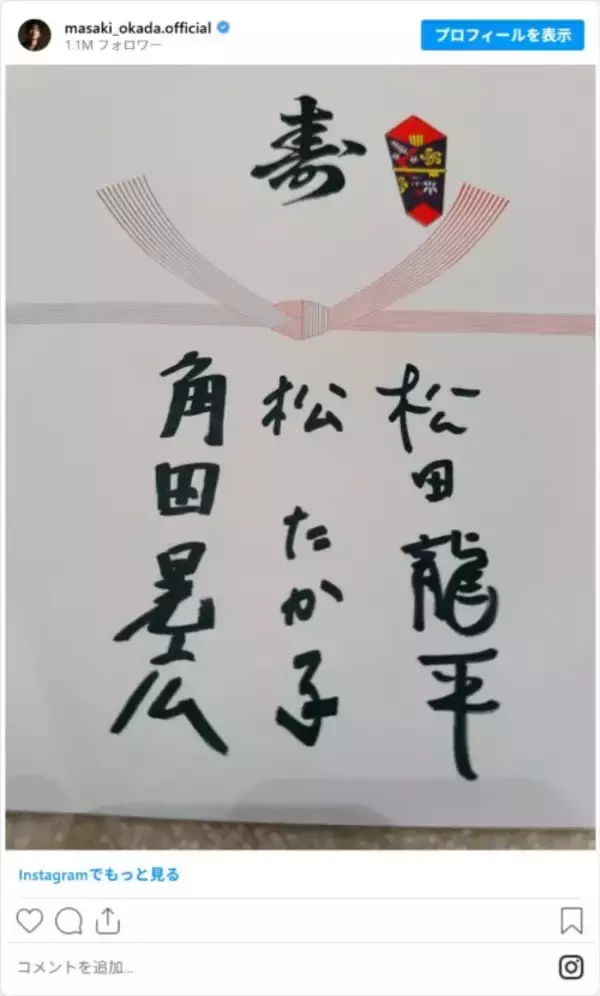 masaki_okada.official
1.1M フォロワー
プロフィールを表示
寿
松田龍平
松 たか子
角田晃広
Instagramでもっと見る
コメントを追加...